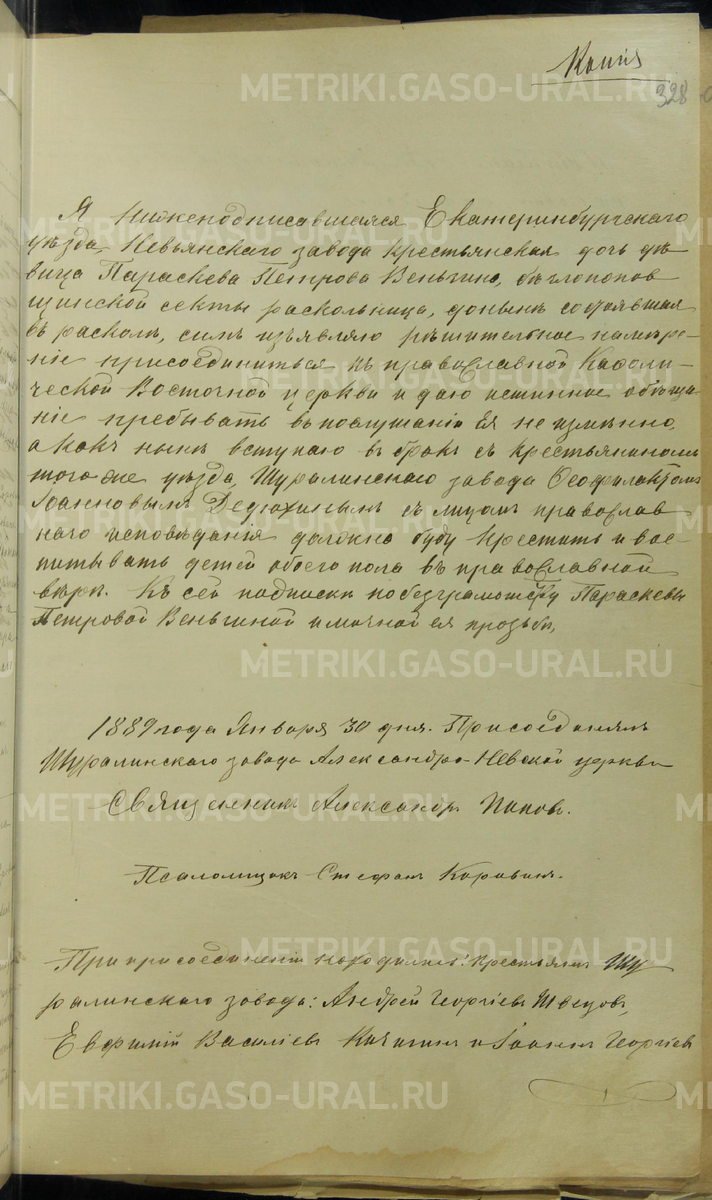 Копія
328
Я нижеподписавшаяся Екатеринбургскаго
уѣзда, Невьянскаго завода крестьянская дочь дѣ
вица Параскева Петрова Веньгина, бѣглопопов
щинской секты раскольница, донынѣ состоявшая
въ расколѣ, симъ изъявляю рѣшительное намѣре-
ніе присоединиться къ православной Каѳоли-
ческой Восточной церкви и даю истинное обѣща
ніе пребывать въ послушаніи Ея не измѣнно,
а какъ нынѣ вступаю въ бракъ съ крестьяниномъ
того же уѣзда, Шуралинскаго завода Ѳеофилактомъ
Іоанновымъ Дедюхинымъ съ лицомъ православ
наго исповѣданія должна буду крестить и вос-
питывать детей обоего пола въ православной
вѣрѣ. Къ сей подписки по безграмотству Параскевы
Петровой Веньгиной и мочной ея прозьби,
1889 года Января 30 дня. Присоединялъ
Шуралинскаго завода Александро-Невской церкви
Священникъ Александръ Поповъ.
Псаломщикъ Стефанъ Коровинъ.
При присоединеніи находились: крестьяне Шу
ралинскаго завода: Андрей Георгіевъ Швецовъ,
Евфимій Василіевъ Кичигинъ и Іоаннъ Георгіевъ
METRIKI.GASO-URAL.RU